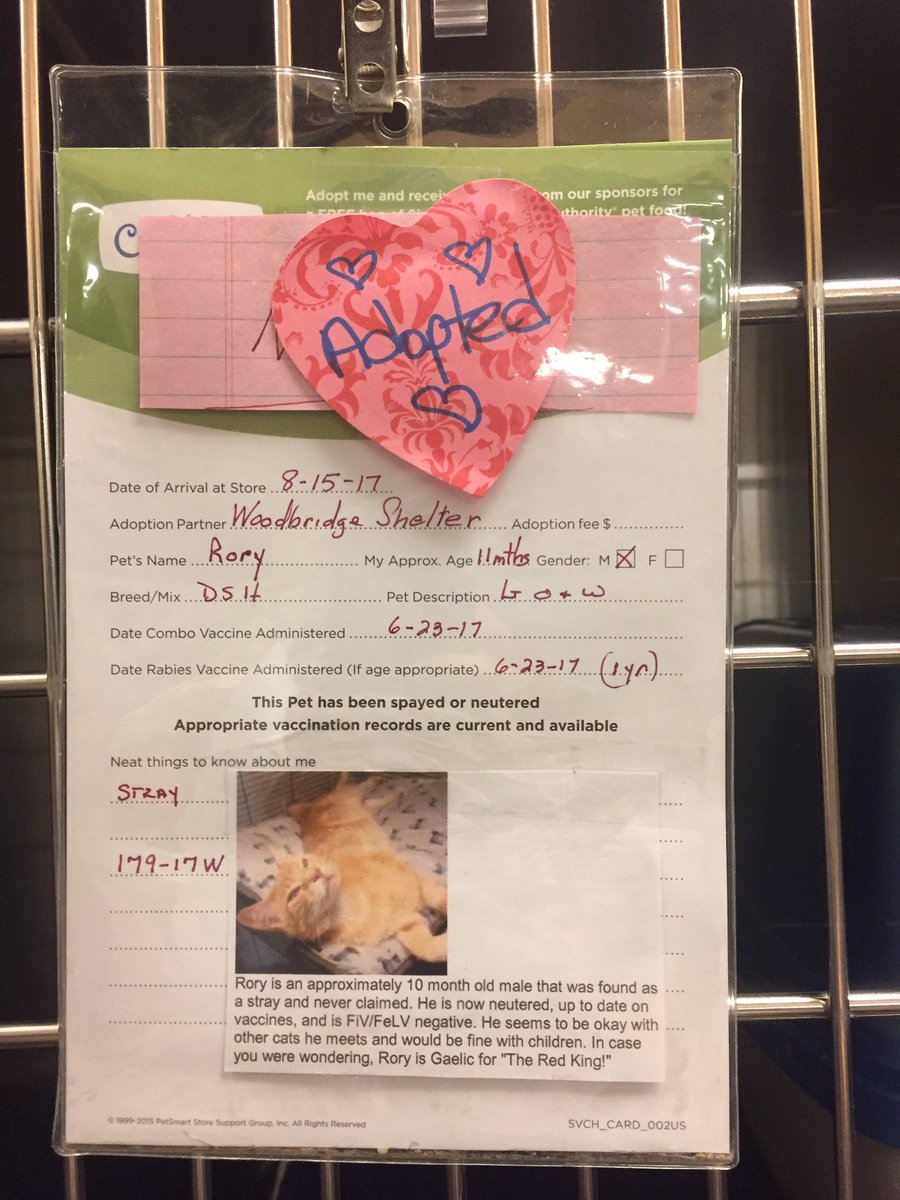 Adopt me and receiv om our sponsors for
uthority® pet food!
C
Adopted
Date of Arrival at Store 8-15-17
Adoption Partner Woodbridge Shelter Adoption fee $
Pet's Name Rory My Approx. Age 11mths Gender: M F
Breed/Mix DSH Pet Description Lt O + W
Date Combo Vaccine Administered 6-23-17
Date Rabies Vaccine Administered (If age appropriate) 6-23-17 (1yr)
This Pet has been spayed or neutered
Appropriate vaccination records are current and available
Neat things to know about me
STRAY
179-17W
Rory is an approximately 10 month old male that was found as
a stray and never claimed. He is now neutered, up to date on
vaccines, and is FiV/FeLV negative. He seems to be okay with
other cats he meets and would be fine with children. In case
you were wondering, Rory is Gaelic for "The Red King!"
© 1999-2015 PetSmart Store Support Group, Inc. All Rights Reserved
SVCH_CARD_002US